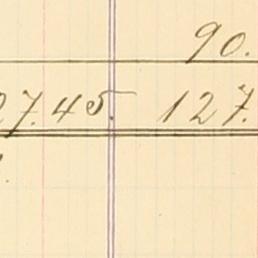 90.
27.45. 127.